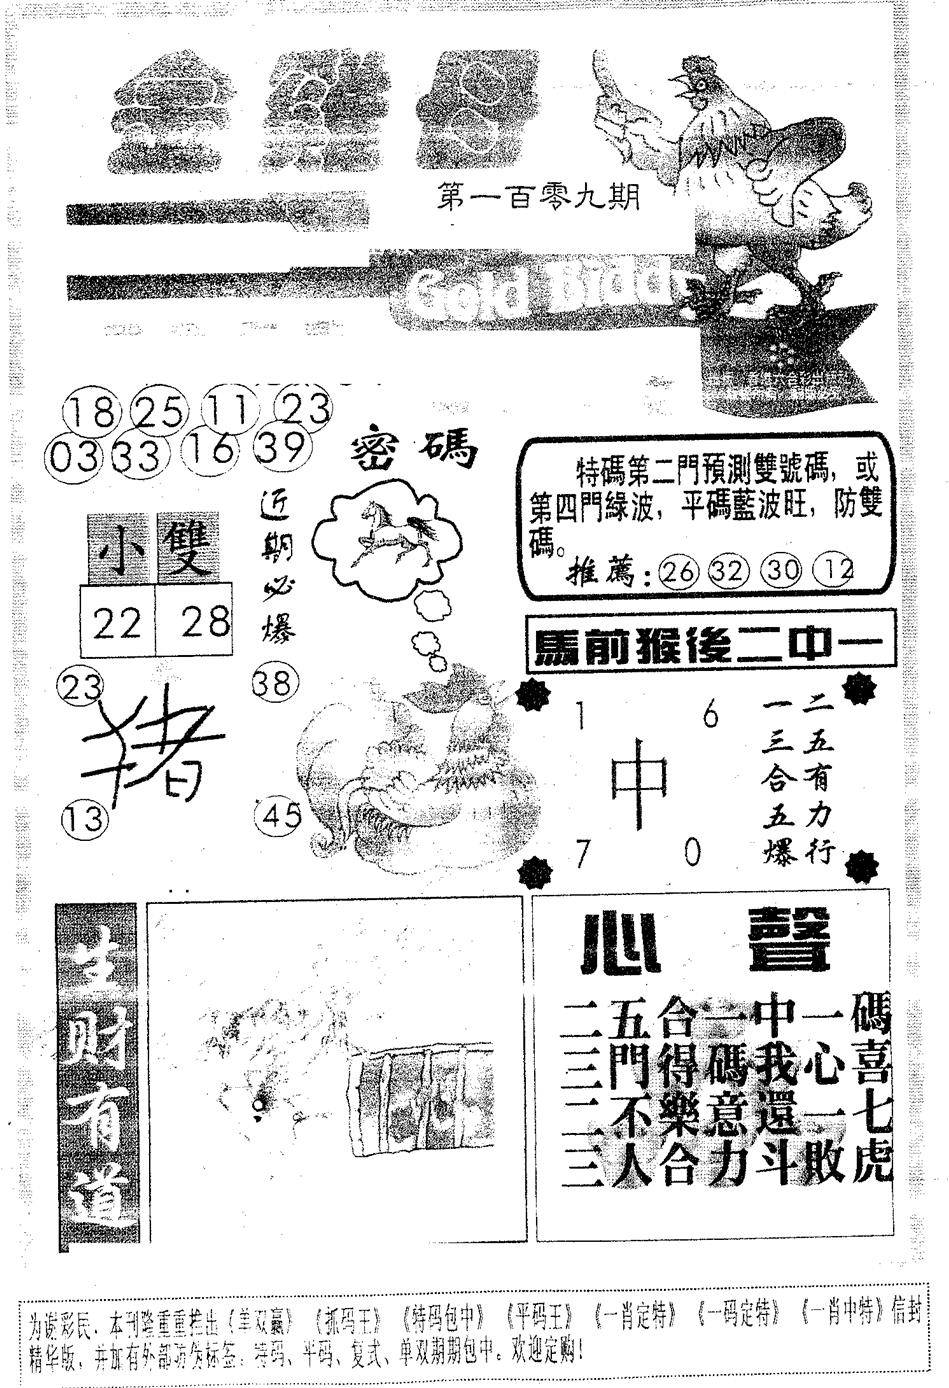 金雞日
第一百零九期
Gold Bidd
18 25 11 23
03 33 16 39
密碼
近期必爆
小 雙
22 28
特碼第二門預測雙號碼，或
第四門綠波，平碼藍波旺，防雙
碼。
推薦：26 32 30 12
馬前猴後二中一
23 38
猪
13 45
1 6
中
7 0
二五有力行
一三合五爆
生财有道
心聲
二五合一中一碼
三門得碼我心喜
二不樂意還一七
三人合力斗敗虎
为谢彩民，本刊隆重重推出《单双赢》《抓码王》《特码包中》《平码王》《一肖定特》《一码定特》《一肖中特》信封
精华版，并加有外部防伪标签，特码、平码、复式、单双期期包中。欢迎定购！